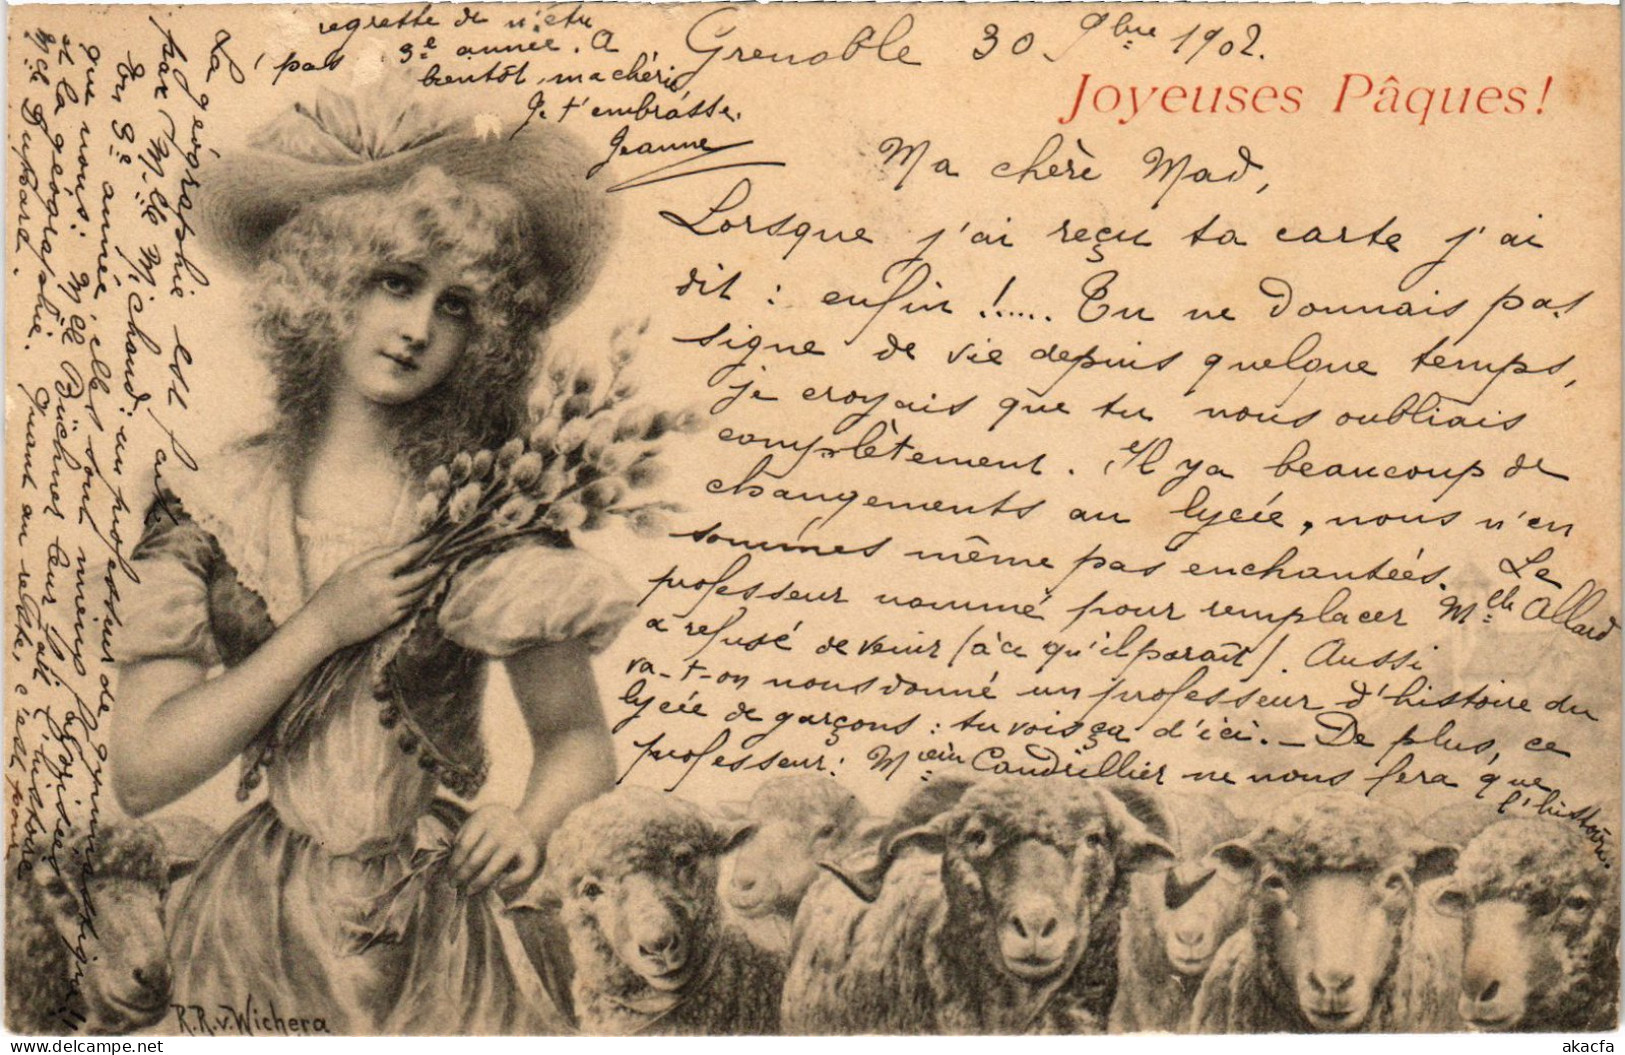 Grenoble 30 9bre 1902.
Joyeuses Pâques!
Ma chère Mad,
Lorsque j'ai reçu ta carte j'ai
dit : enfin !..... Tu ne donnais pas
signe de vie depuis quelque temps,
je croyais que tu nous oubliais
complètement. Il y a beaucoup de
changements au lycée, nous n'en
sommes même pas enchantées. Le
professeur nommé pour remplacer Melle Allard
a refusé de venir (à ce qu'il parait). Aussi
va-t-on nous donné un professeur d'histoire du
lycée de garçons : tu vois ça d'ici. - De plus, ce
professeur : M Caudrillier ne nous fera que
l'histoire.
La géographie est faite
par Melle Michaud : un professeur de gymnastique !!
En 3e année elles sont mieux favorisées
que nous : Melle Büchner leur fait l'histoire
et la géographie. Quant au reste, c'est pour
Melle Dupard.
regrette de n'être
pas 3e année. A
bientôt, ma chérie,
Je t'embrasse.
Jeanne
R.R.v.Wichera
akacfa